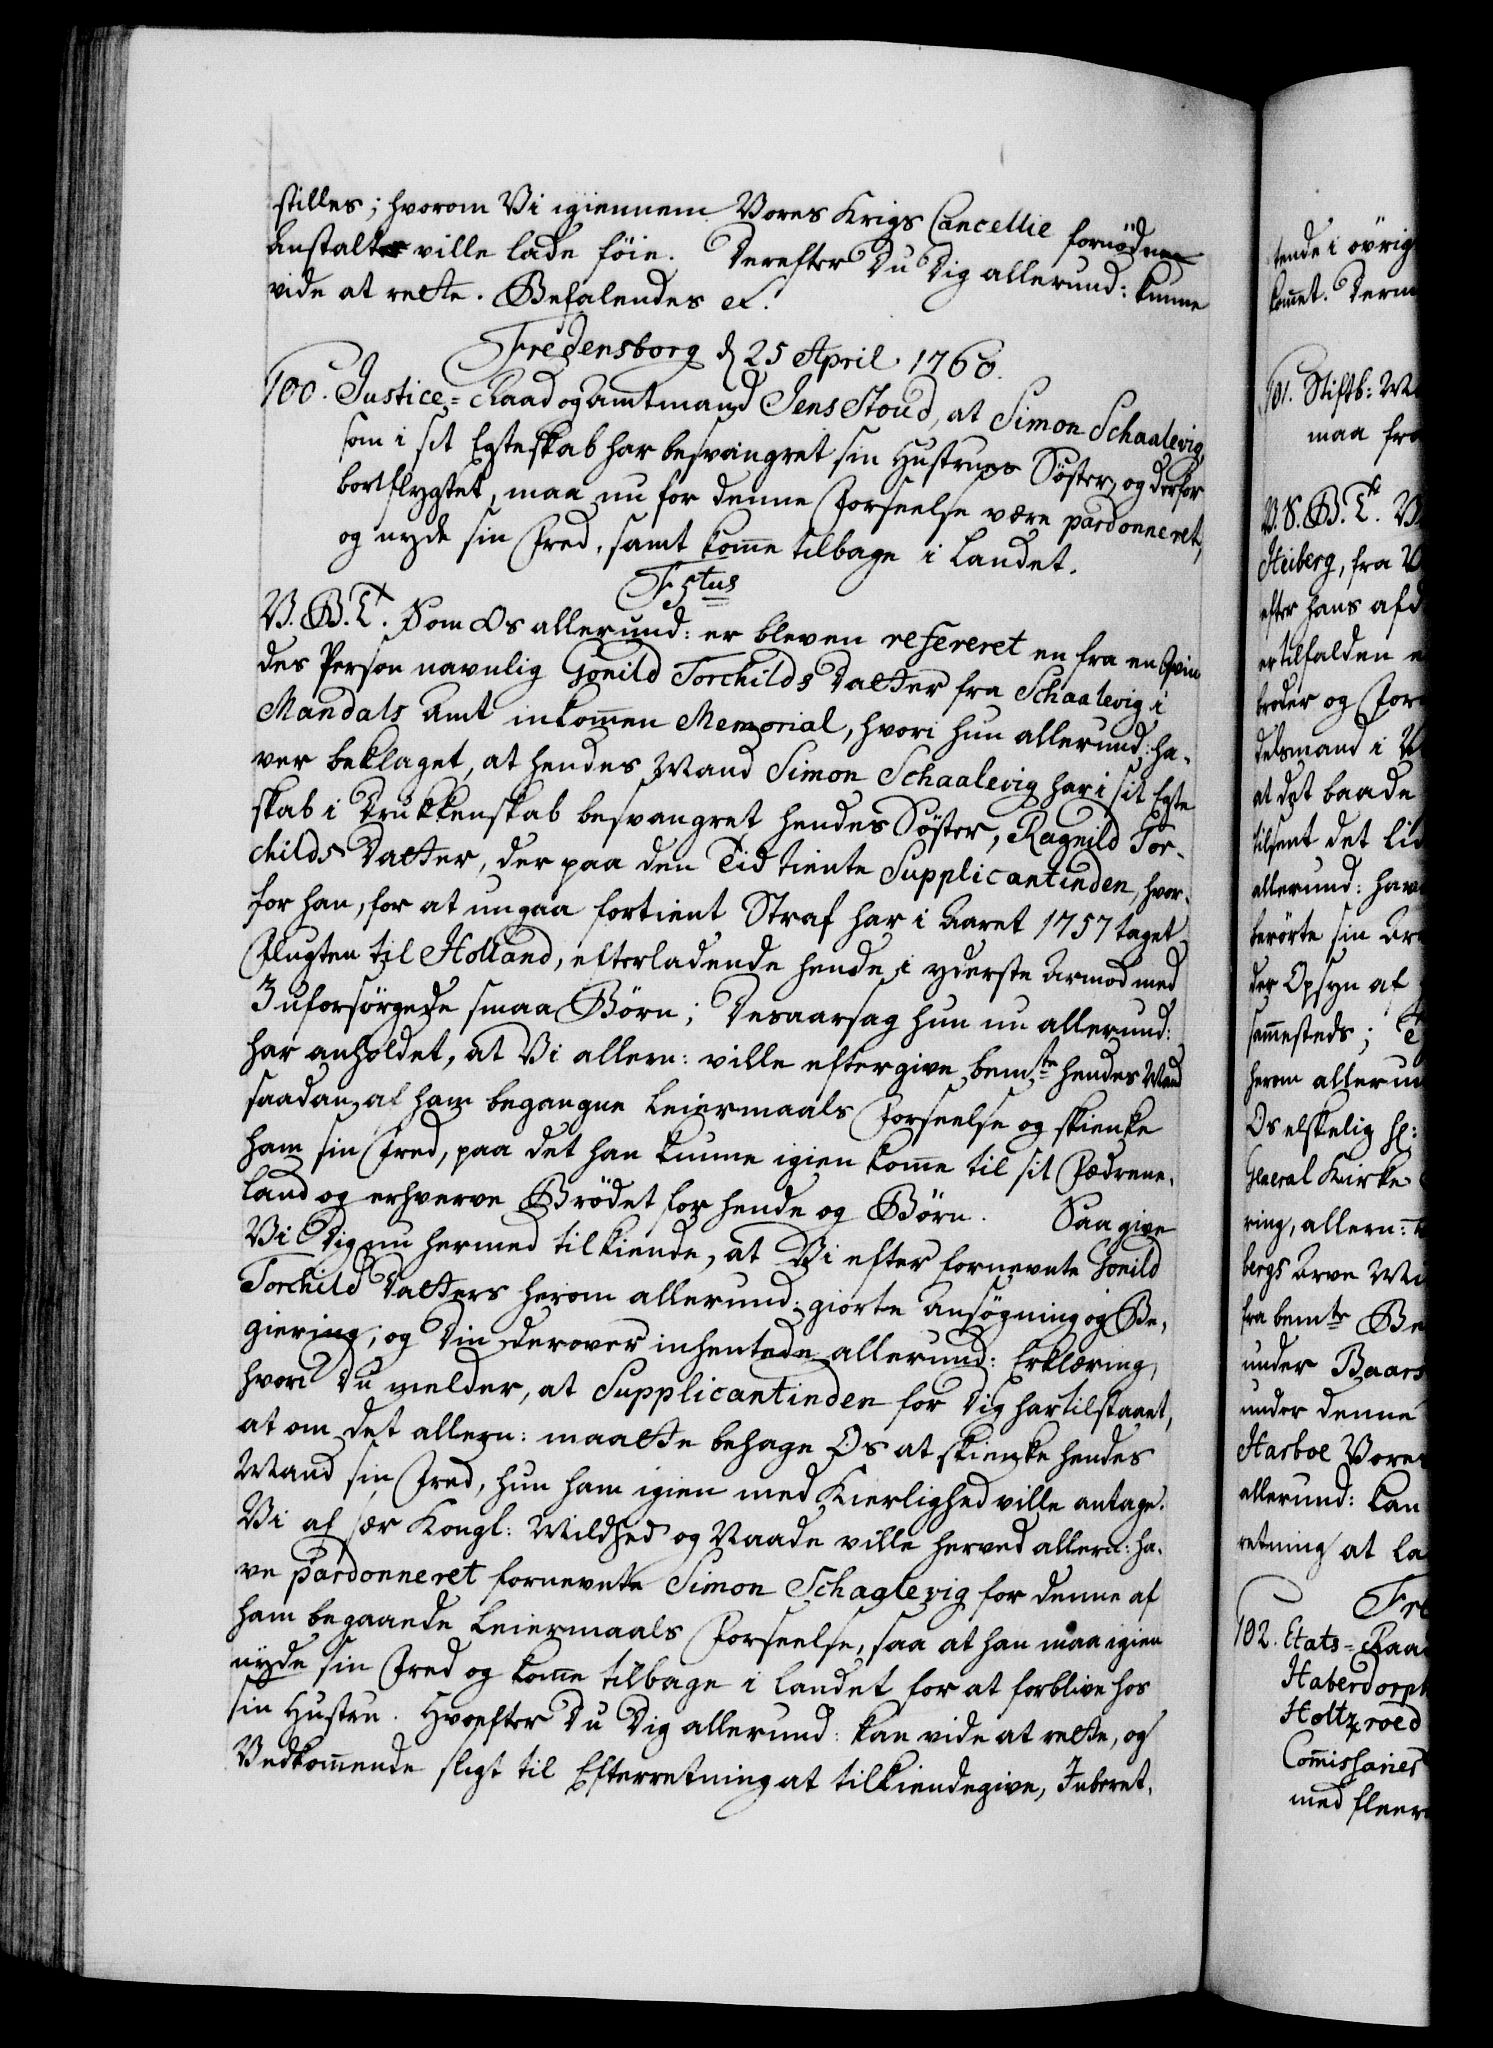 stilles; hvorom Vi igiennem Vores Krigs Cancellie fornödne
Anstalter ville lade föie. Derefter Du Dig allerund: kunne
vide at rette. Befalendes etc.
Fredensborg d 25 April 1760.
100. Justice-Raad og Amtmand Jens Stoud, at Simon Schaalevig,
som i sit Egteskab har besvangret sin Hustrues Söster, og derfor
bortflygtet, maa nu for denne Forseelse være pardonneret,
og nyde sin Fred, samt komme tilbage i Landet.
F 5tus
V. G. T. Som Os allerund: er bleven refereret en fra en Qvin
des Person navnlig Gonild Torchilds Datter fra Schaalevig i
Mandals Amt inkommen Memorial, hvori hun allerund: ha-
ver beklaget, at hendes Mand Simon Schaalevig har i sit Egte
skab i Drukkenskab besvangret hendes Söster, Ragnild Tor-
childs Datter, der paa den Tid tiente Supplicantinden, hvor-
for han, for at undgaa fortient Straf har i Aaret 1757 taget
Flugten til Holland, efterladende hende i yderste Armod med
3 uforsörgede smaa Börn; Desaarsag hun nu allerund:
har anholdet, at Vi allern: ville eftergive bemte hendes Mand
saadan af ham begangne Leiermaals Forseelse og skienke
ham sin Fred, paa det han kunne igien komme til sit Fædrene-
land og erhverve Brödet for hende og Börn. Saa give
Vi Dig nu hermed tilkiende, at Vi efter fornevnte Gonild
Torchild Datters herom allerund: giorte Ansögning og Be-
giering; og Din derover inhentede allerund: Erklæring,
hvori Du melder, at Supplicantinden for Dig har tilstaaet,
at om det allern: maatte behage Os at skienke hendes
Mand sin Fred, hun ham igien med Kierlighed ville antage.
Vi af sær Kongl: Mildhed og Naade ville herved allern: ha-
ve pardonneret fornevnte Simon Schaalevig for denne af
ham begaaende Leiermaals Forseelse, saa at han maa igien
nyde sin Fred og komme tilbage i Landet for at forblive hos
sin Hustru. Hvorefter Du Dig allerund: kan vide at rette, og
Vedkommende sligt til Efterretning at tilkiendegive, Inberet-
tende i övrig
kommet. Derm
101. Stiftb:
maa fra
V. S. G. T.
Heiberg, fra
efter hans afd
er tilfalden
broder og For
delsmand i
at det baade
tilsent det
allerund: hav
berörte sin Ar
der Opsyn af
sammesteds;
herom allerun
Os elskelig
General Kirke
ring, allern:
bergs Arve
fra bemte Be
under Baars
under denne
Harboe Vores
allerund: kan
retning at la
Fre
102. Etats-Raad
Haberdorph
Holtzroed
Commissarier
med fleer